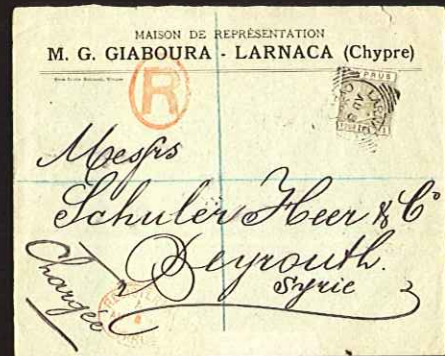 MAISON DE REPRÉSENTATION
M. G. GIABOURA - LARNACA (Chypre)
R
PRUS
Messrs
Schuler Heer & Co
Beyrouth.
Syrie
Chargée